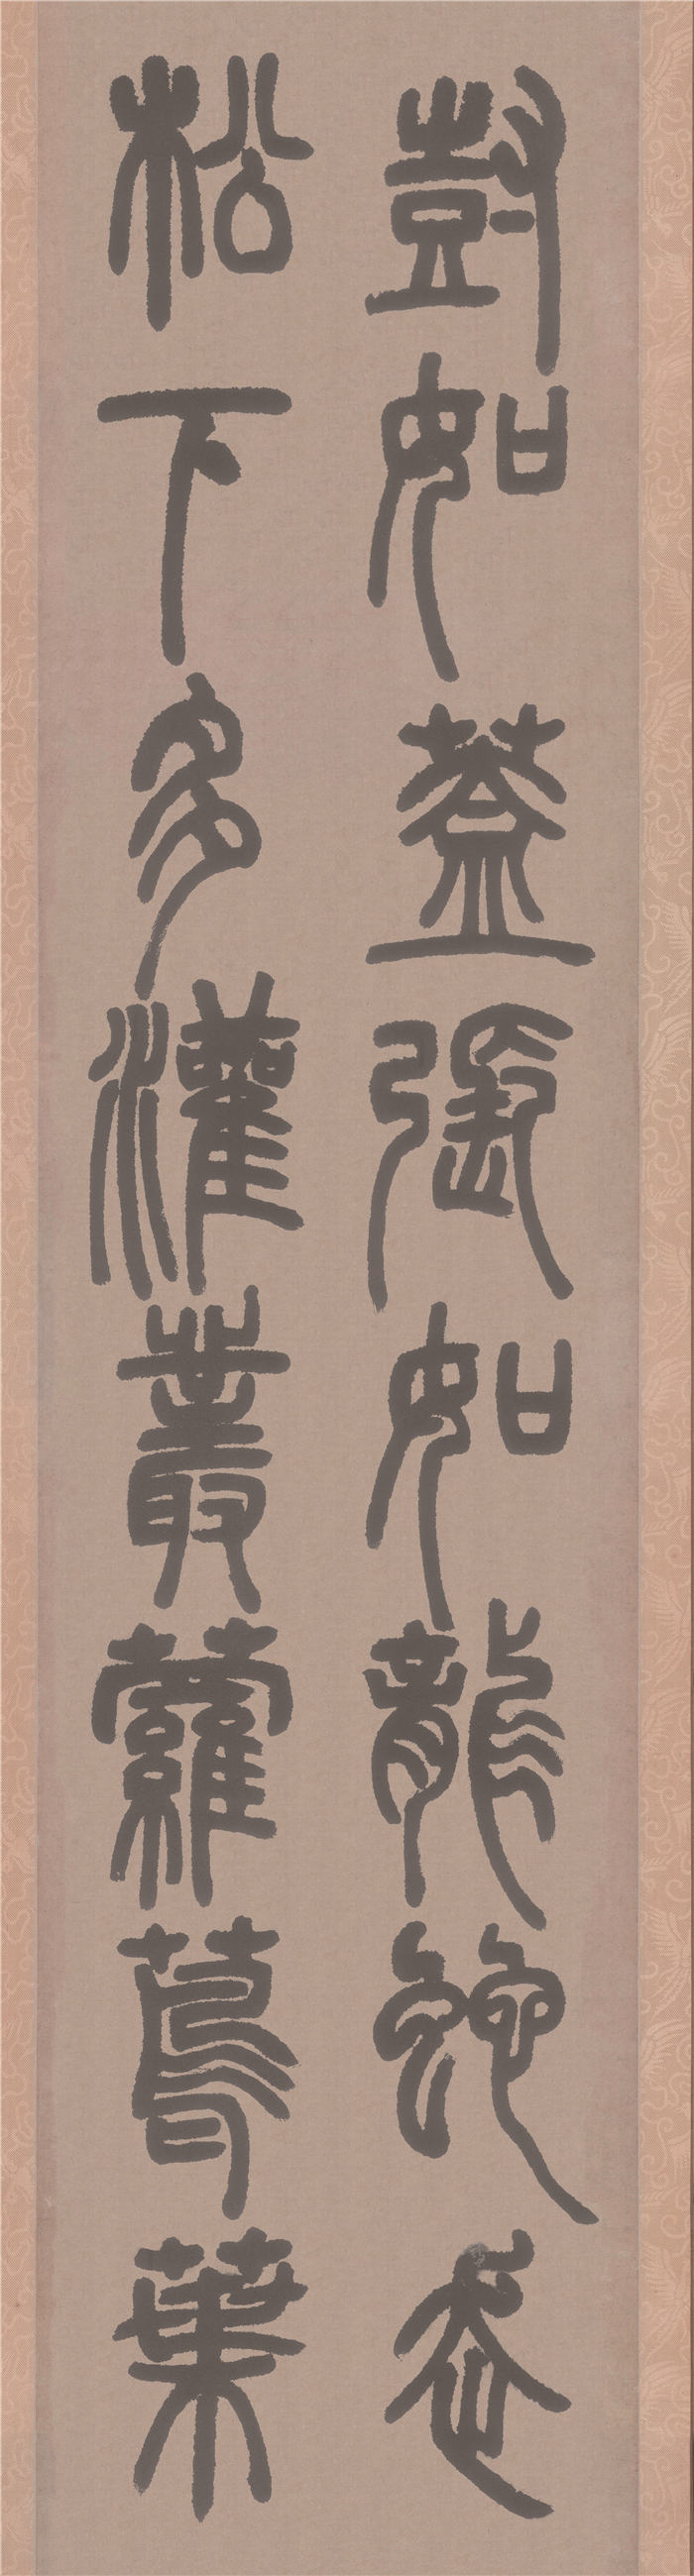 尌如蓋張如龍蛇走
松下多灌叢蘿蔦葉